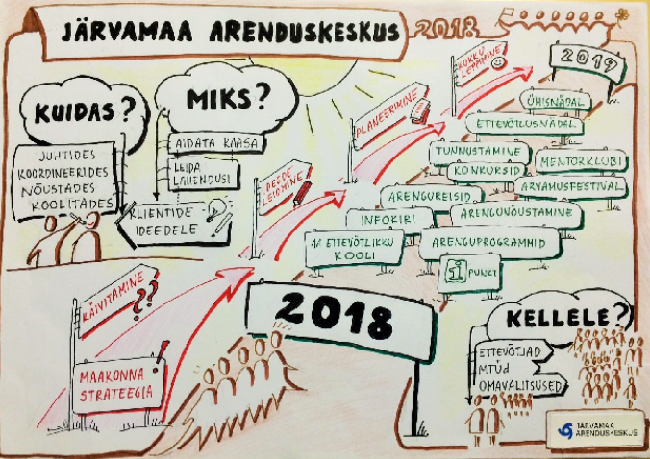 JÄRVAMAA ARENDUSKESKUS 2018
KUIDAS?
JUHTIDES
KOORDINEERIDES
NÕUSTADES
KOOLITADES
MIKS?
AIDATA KAASA
LEIDA
LAHENDUSI
KLIENTIDE
IDEEDELE
KÄIVITAMINE
??
MAAKONNA
STRATEEGIA
IDEEDE
LEIDMINE
PLANEERIMINE
KOKKU
LEPPIMINE
2019
ÜHISNÄDAL
ETTEVÕTLUSNÄDAL
TUNNUSTAMINE
KONKURSID
MENTORKLUBI
ARVAMUSFESTIVAL
ARENGUREISID
INFOKIRI
ARENGUNÕUSTAMINE
ETTEVÕTLIKKU
KOOLI
ARENGUPROGRAMMID
i PUNKT
2018
KELLELE?
ETTEVÕTJAD
MTÜd
OMAVALITSUSED
JÄRVAMAA
ARENDUSKESKUS